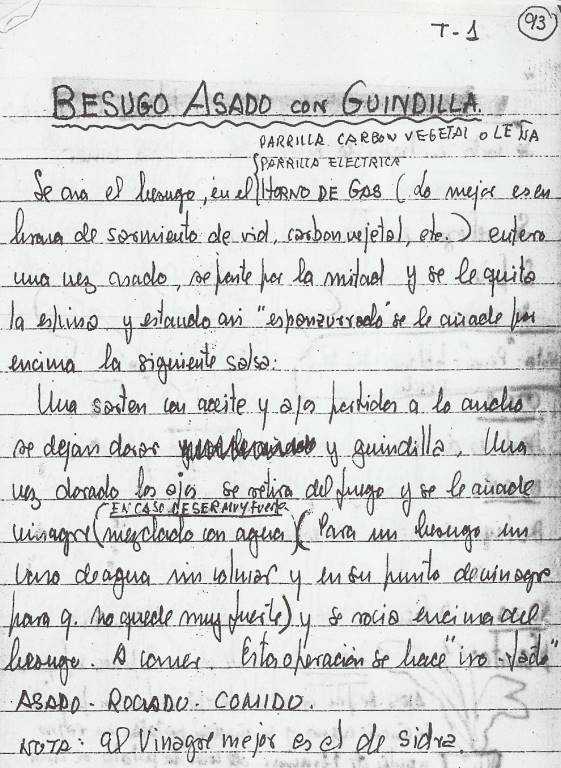 T-1 93
BESUGO ASADO CON GUINDILLA.
PARRILLA CARBON VEGETAL O LEÑA
PARRILLA ELECTRICA
Se asa el besugo, en el HORNO DE GAS (Lo mejor es en
brasa de sarmiento de vid, carbon vejetal, etc.) entero
una vez asado, se parte por la mitad y se le quita
la espina y estando asi "espanzurrado" se le añade por
encima la siguiente salsa:
Una sarten con aceite y ajos partidos a lo ancho
se dejan dorar y guindilla. Una
vez dorado los ajos se retira del fuego y se le añade
EN CASO DE SER MUY FUERTE
vinagre (mezclado con agua) (Para un besugo un
vaso de agua sin colmar y en su punto de vinagre
para q. no quede muy fuerte) y se rocia encima del
besugo. A comer. Esta operación se hace
ASADO - ROCIADO - COMIDO.
NOTA: el Vinagre mejor es el de Sidra.